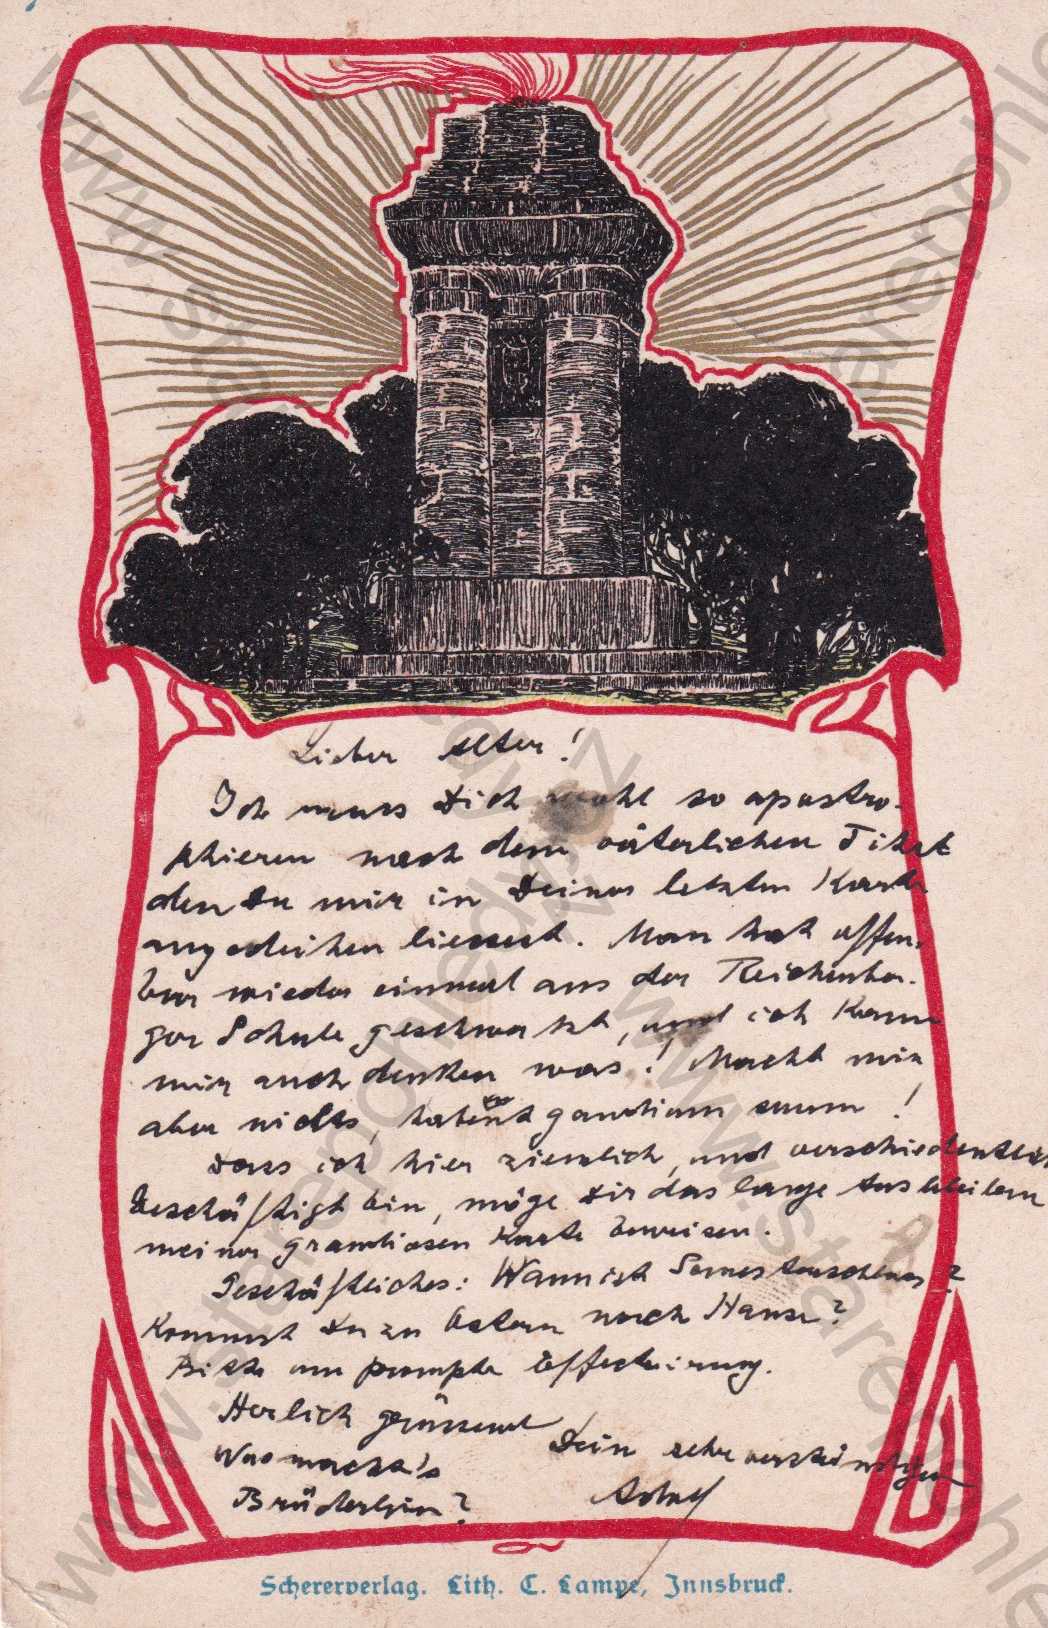 Lieber Alter!
Ich muss Dich wohl so apostro-
phieren nach dem väterlichen
den Du mir in Deiner letzten Karte
angedeihen liessest. Man hat offen-
bar wieder einmal aus der Reichenber-
ger Schule geschwatzt, und ich kann
mir auch denken was! Macht mir
aber nichts, gaudium summ!
Dass ich hier ziemlich, und verschiedentlich
Geschäftigt bin, möge Dir das lange Ausbleiben
meiner grandiosen Karte beweisen.
Geschäftliches: Wann ist Semesterschluss?
Kommst Du zu Ostern nach Hause?
Bitte um prompte Effectuirung.
Herlich grüssend
Dein sehr
Was macht's
Brüderlein?
Schererverlag. Lith. C. Lampe, Innsbruck.
www.starepohledy.cz